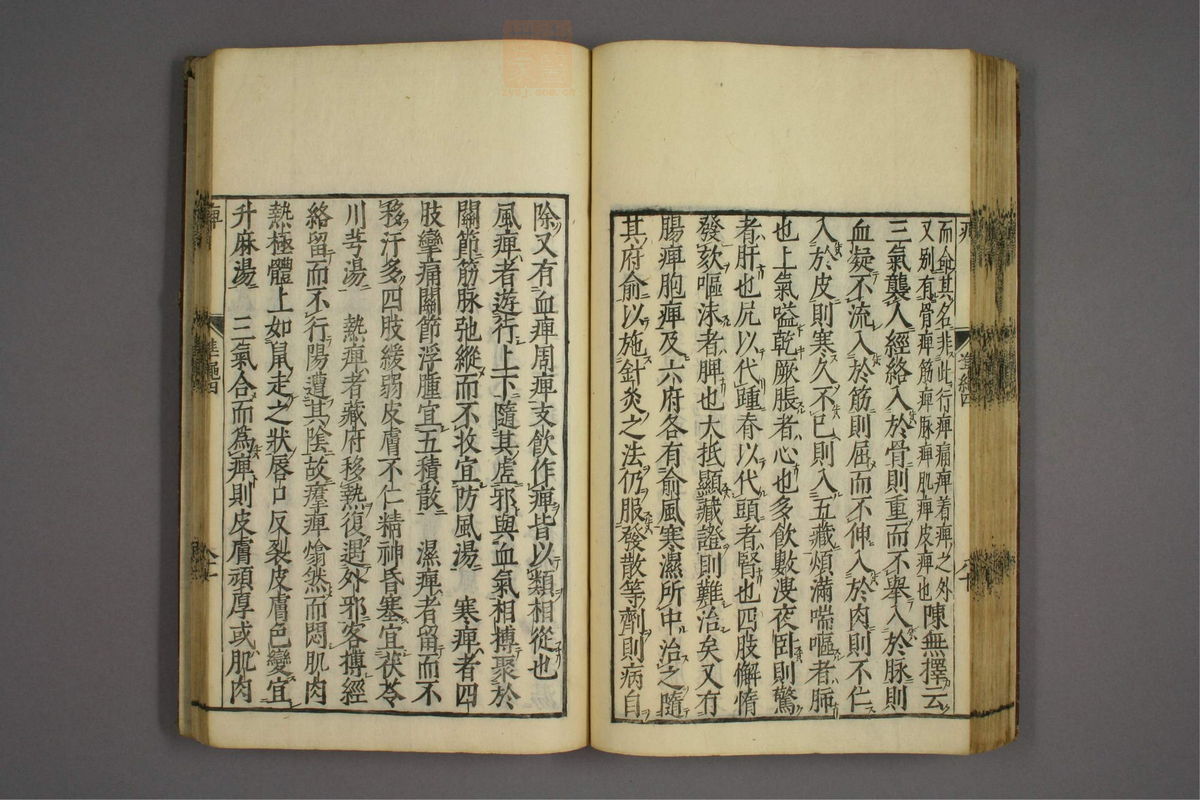 而命其名非此行痺痛痺着痺之外
又别有骨痺筋痺脉痺肌痺皮痺也陳無擇云
三氣襲入經絡入於骨則重而不舉入於脉則
血凝不流入於筋則屈而不伸入於肉則不仁
入於皮則寒久不已則入五藏煩滿喘嘔者肺
也上氣嗌乾厥脹者心也多飲數溲夜卧則驚
者肝也尻以代踵脊以代頭者腎也四肢懈惰
發欬嘔沫者脾也大抵顯藏證則難治矣又有
腸痺胞痺及六府各有俞風寒濕所中治之隨
其府俞以施針灸之法仍服發散等劑則病自
除又有血痺周痺支飲作痺皆以類相從也
風痺者遊行上下隨其虚邪與血氣相搏聚於
關節筋脉弛縱而不收宜防風湯 寒痺者四
肢攣痛關節浮腫宜五積散 濕痺者留而不
移汗多四肢緩弱皮膚不仁精神昏塞宜茯苓
川芎湯 熱痺者藏府移熱復遇外邪客搏經
絡留而不行陽遭其陰故㿏痺熻然而悶肌肉
熱極體上如鼠走之狀唇口反裂皮膚色變宜
升麻湯 三氣合而爲痺則皮膚頑厚或肌肉
準繩四